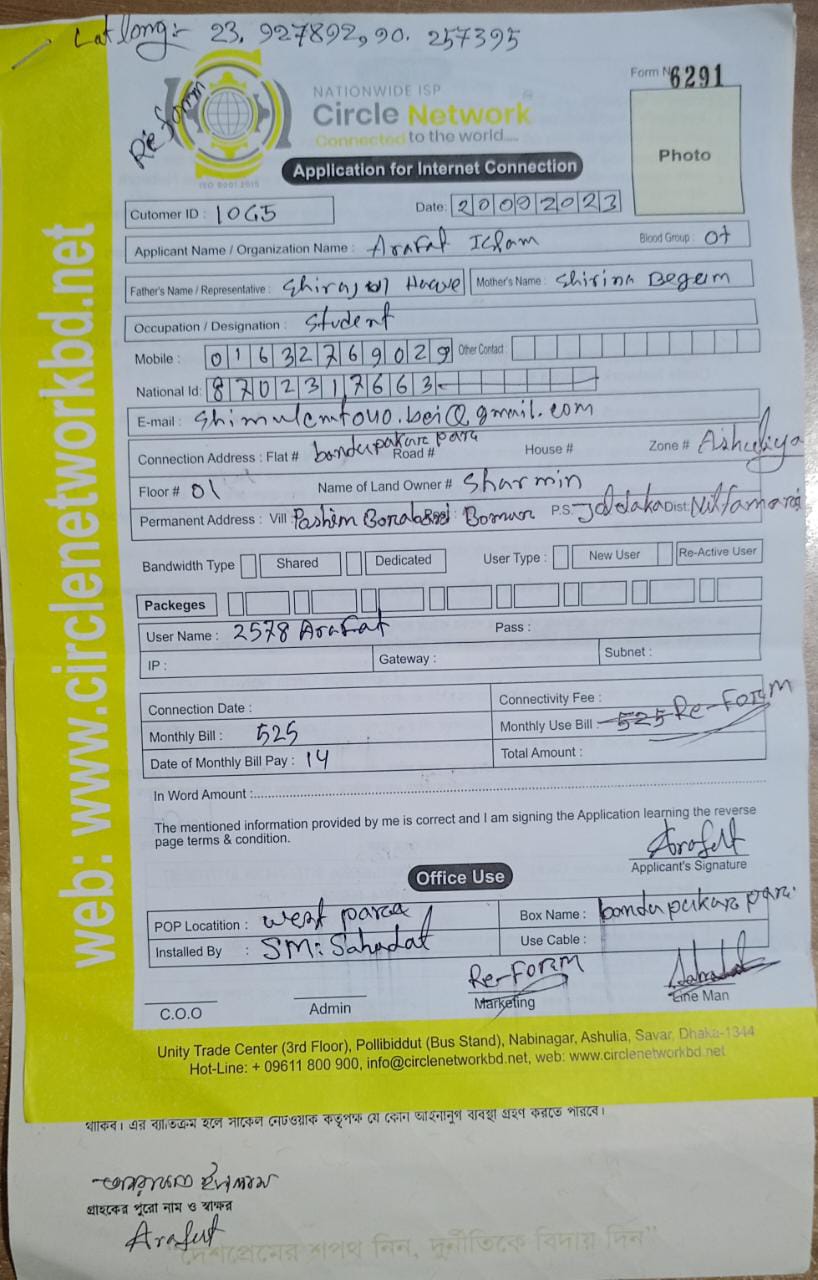 Lat long:- 23.927892,90.257395
Re form
NATIONWIDE ISP
Circle Network
Connected to the world....
ISO 9001:2015
Form No 6291
Photo
Application for Internet Connection
Cutomer ID : 1065 Date: 20092023
Applicant Name / Organization Name : Arafat Islam Blood Group : O+
Father's Name / Representative : Shirajul Haque Mother's Name : Shirina Begum
Occupation / Designation : Student
Mobile : 01632769029 Other Contact :
National Id: 8702317663
E-mail : @gmail.com
Connection Address : Flat # bondupakara para Road # House # Zone # Ashuliya
Floor # 01 Name of Land Owner # Sharmin
Permanent Address : Vill Pashim P.S: Joldaka Dist: Nilfamari
Bandwidth Type Shared Dedicated User Type : New User Re-Active User
Packeges
User Name : 2578 Arafat Pass :
IP : Gateway : Subnet :
Connection Date : Connectivity Fee :
Monthly Bill : 525 Monthly Use Bill 525 Re-Form
Date of Monthly Bill Pay : 14 Total Amount :
In Word Amount :
The mentioned information provided by me is correct and I am signing the Application learning the reverse
page terms & condition.
Arafat
Applicant's Signature
Office Use
POP Locatition : west para Box Name : bondupukara para
Installed By : SM: Sahadat Use Cable :
Re-Form
C.O.O Admin Marketing Line Man
Unity Trade Center (3rd Floor), Pollibiddut (Bus Stand), Nabinagar, Ashulia, Savar, Dhaka-1344
Hot-Line: + 09611 800 900, info@circlenetworkbd.net, web: www.circlenetworkbd.net
web: www.circlenetworkbd.net
থাকিব। এর ব্যতিক্রম হলে সার্কেল নেটওয়ার্ক কতৃপক্ষ যে কোন আইনানুগ ব্যবস্থা গ্রহণ করতে পারবে।
ইসলাম
গ্রাহকের পুরো নাম ও স্বাক্ষর
Arafat
দেশপ্রেমের শপথ নিন, দুর্নীতিকে বিদায় দিন"